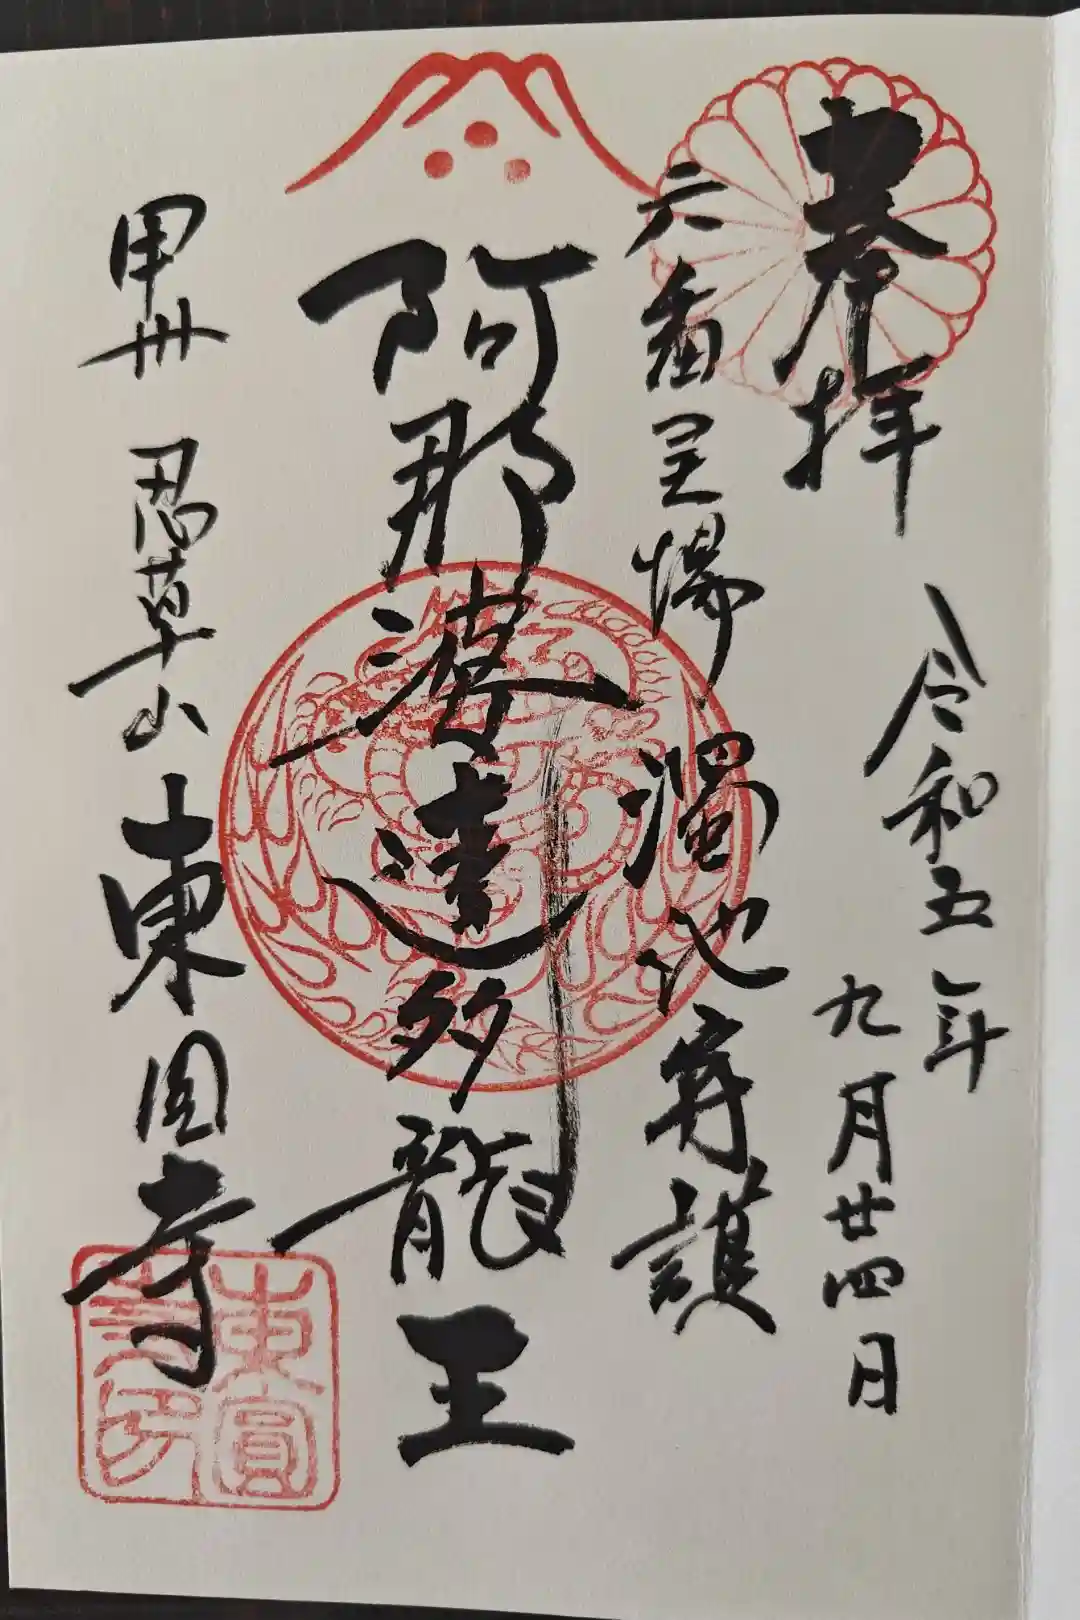 奉拝
令和五年
九月廿四日
六番霊場 濁池守護
阿那婆達多龍王
甲州 忍草山 東圓寺
東圓寺印